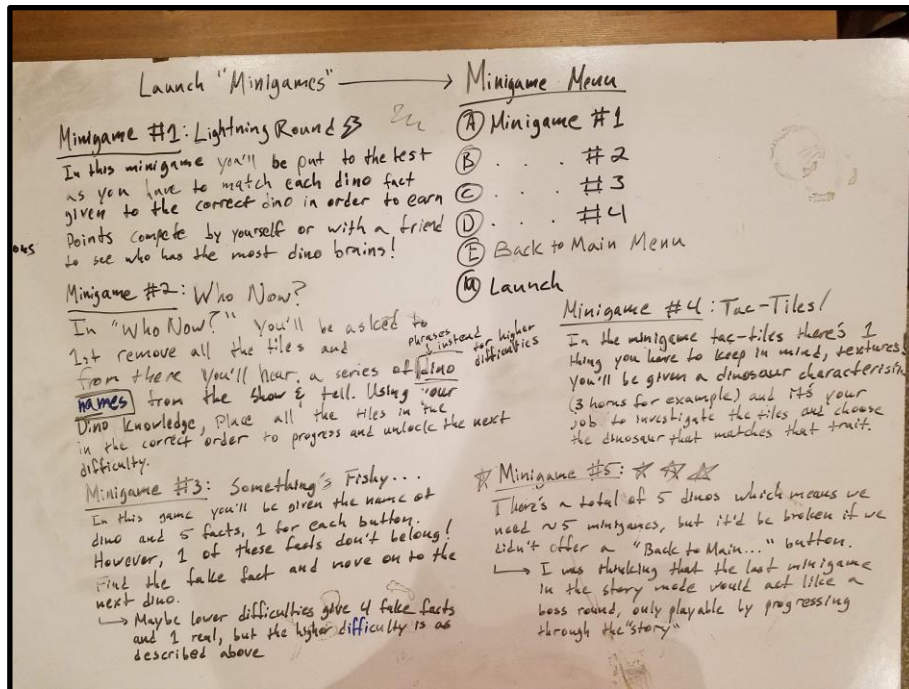 Launch "Minigames" → Minigame Menu
Minigame #1: Lightning Round
In this minigame you'll be put to the test
as you have to match each dino fact
given to the correct dino in order to earn
Points compete by yourself or with a friend
to see who has the most dino brains!
Ⓐ Minigame #1
Ⓑ . . . . #2
Ⓒ . . . . #3
Ⓓ . . . . #4
Ⓔ Back to Main Menu
Ⓜ Launch
Minigame #2: Who Now?
In "Who Now?" You'll be asked to
1st remove all the tiles and
phrases instead for higher
difficulties
from there you'll hear a series of dino
names from the show & tell. Using your
Dino knowledge, Place all the tiles in the
in the correct order to progress and unlock the next
difficulty.
Minigame #3: Something's Fishy...
In this game you'll be given the name of
dino and 5 facts, 1 for each button.
However, 1 of these facts don't belong!
Find the fake fact and move on to the
next dino.
↳ Maybe lower difficulties give 4 fake facts
and 1 real, but the higher difficulty is as
described above
Minigame #4: Tac-Tiles!
In the minigame tac-tiles there's 1
thing you have to keep in mind, textures
you'll be given a dinosaur characterisin
(3 horns for example) and it's your
job to investigate the tiles and choose
the dinosaur that matches that trait.
☆ Minigame #5: ☆ ☆ ☆
There's a total of 5 dinos which means we
need ~5 minigames, but it'd be broken if we
didn't offer a "Back to Main..." button.
↳ I was thinking that the last minigame
in the story mode would act like a
boss round, only playable by progressing
through the "story"